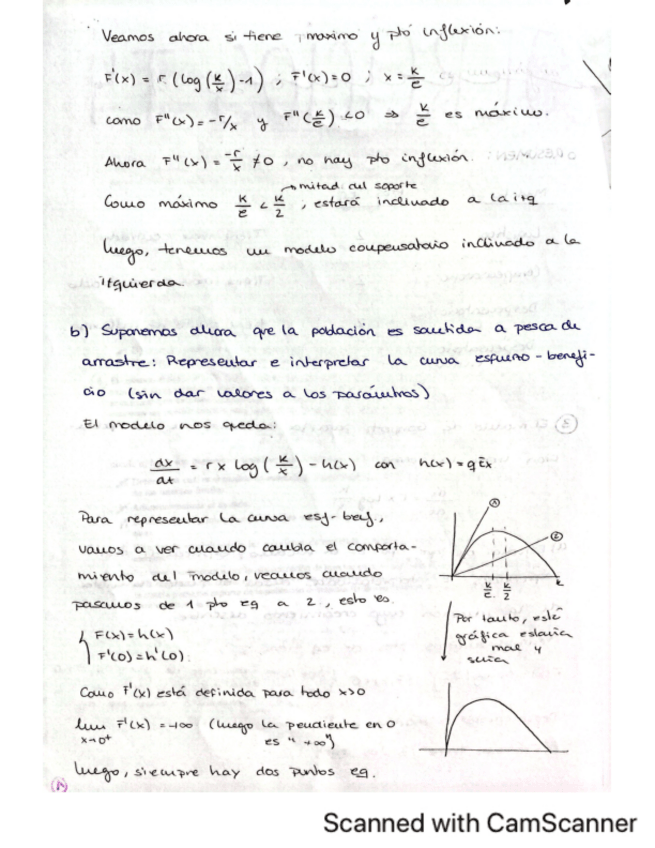 Veamos ahora si tiene máximo y pto inflexión:
F'(x) = r (log(K/x) - 1) ; F'(x) = 0 ; x = K/e
como F''(x) = -r/x y F''(K/e) < 0 ⇒ K/e es máximo.
Ahora F''(x) = -r/x ≠ 0, no hay pto inflexión.
mitad del soporte
Como máximo K/e < K/2, estará inclinado a la izq
luego, tenemos un modelo compensatorio inclinado a la
izquierda.
b) Suponemos ahora que la población es sometida a pesca de
arrastre: Representar e interpretar la curva esfuerzo-benefi-
cio (sin dar valores a los parámetros)
El modelo nos queda:
dx/dt = r x log(K/x) - h(x) con h(x) = q E x
Para representar la curva esf-benf.,
vamos a ver cuando cambia el comporta-
miento del modelo, veamos cuando
pasamos de 1 pto eq a 2, esto es.
{ F(x) = h(x)
F'(0) = h'(0)
Como F'(x) está definida para todo x>0
lim x→0+ F'(x) = +∞ (luego la pendiente en 0
es "+∞")
luego, siempre hay dos puntos eq.
1
2
K/e K/2 K
Por tanto, esta
gráfica estaría
mal y
sería
Scanned with CamScanner